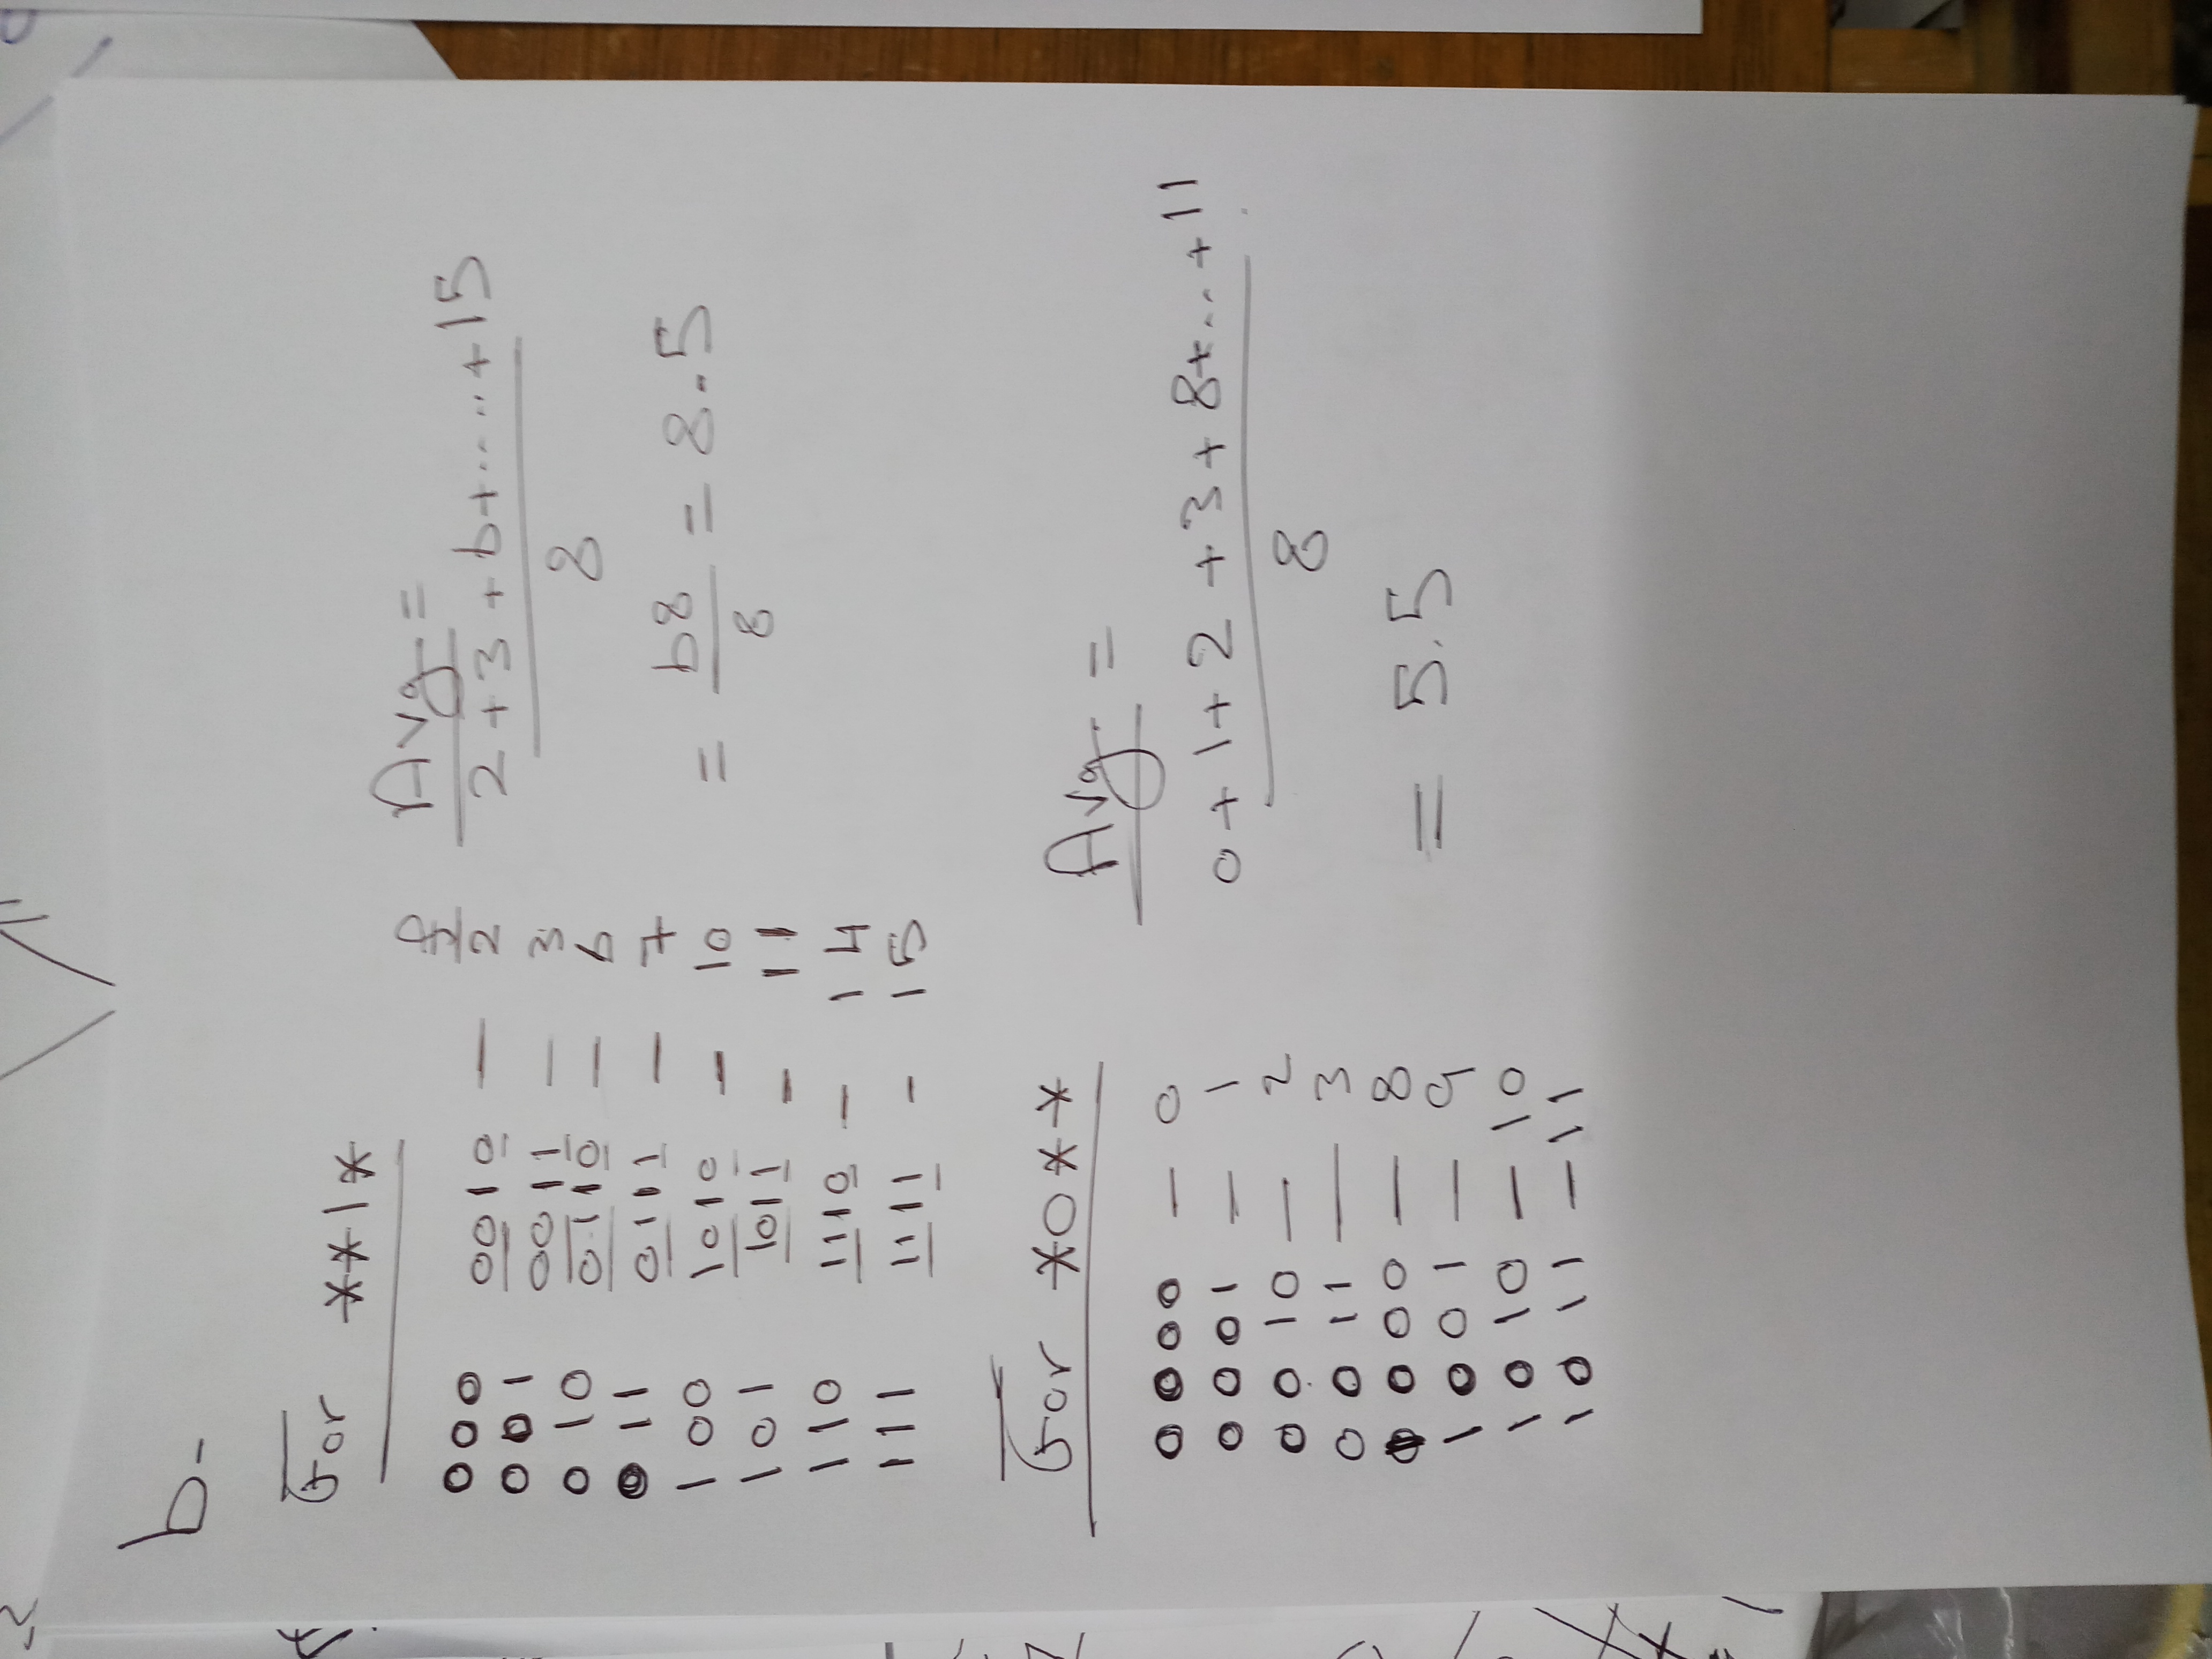 b-
For **1*
f
000 0010 — 2
001 0011 — 3
010 0110 — 6
011 0111 — 7
100 1010 — 10
101 1011 — 11
110 1110 — 14
111 1111 — 15
Avg =
2+3+6+.....+15
8
= 68 = 8.5
8
For *0**
0000 — 0
0001 — 1
0010 — 2
0011 — 3
1000 — 8
1001 — 9
1010 — 10
1011 — 11
Avg. =
0+1+2+3+8+...+11
8
= 5.5